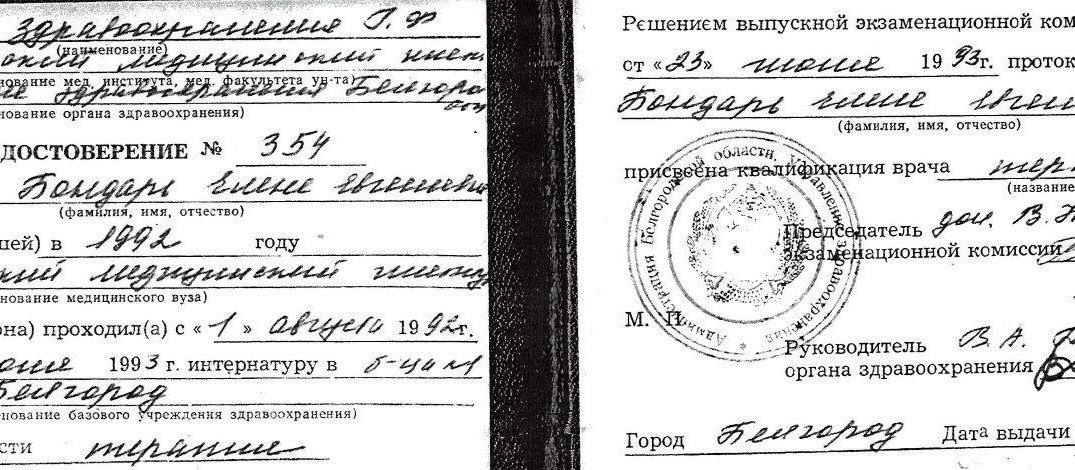 здравоохранения Р.Ф
(наименование)
ский медицинский инст
нование мед. института, мед. факультета ун-та)
ие здравоохранения Белгоро
нование органа здравоохранения)
ДОСТОВЕРЕНИЕ № 354
Бондарь Елене Евгеньевн
(фамилия, имя, отчество)
шей) в 1992 году
ский медицинский инсти
нование медицинского вуза)
она) проходил(а) с «1» августа 1992г.
1993 г. интернатуру в б-ца
Белгород
нование базового учреждения здравоохранения)
сти терапия
Решением выпускной экзаменационной ком
от «23» июня 1993г. проток
Бондарь Елене Евген
(фамилия, имя, отчество)
присвоена квалификация врача тера
(название
Председатель доц. В.
экзаменационной комиссии
М. П.
Руководитель В. А.
органа здравоохранения
Город Белгород Дата выдачи
Администрация Белгородской области. Управление здравоохранения